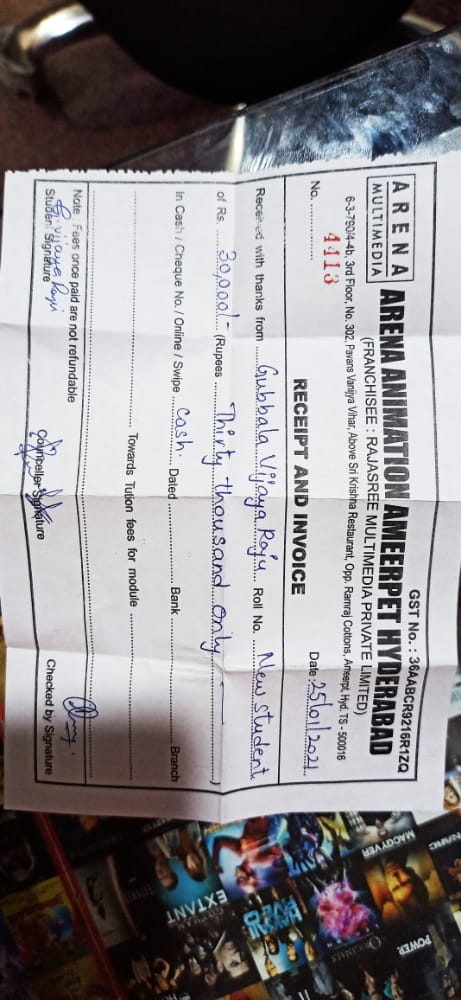 GST No. : 36AABCR9216R1ZQ
ARENA
MULTIMEDIA
ARENA ANIMATION AMEERPET HYDERABAD
(FRANCHISEE : RAJASREE MULTIMEDIA PRIVATE LIMITED)
6-3-790/4-4b, 3rd Floor, No. 302, Pavans Vanijya Vihar, Above Sri Krishna Restaurant, Opp. Ramraj Cottons, Ameerpt, Hyd. TS - 500016
No. 4413
Date : 25/01/2021
RECEIPT AND INVOICE
Received with thanks from Gubbala Vijaya Raju Roll No. New student
of Rs. 30,000/- (Rupees Thirty thousand only)
In Cash / Cheque No. / Online / Swipe cash Dated Bank Branch
Towards Tution fees for module
Note : Fees once paid are not refundable
G. Vijaya Raju
Student Signature
Councellor Signature
Checked by Signature
MACGYVER
EXTANT
HAWAII FIVE-0
ORIGINALS
POWER